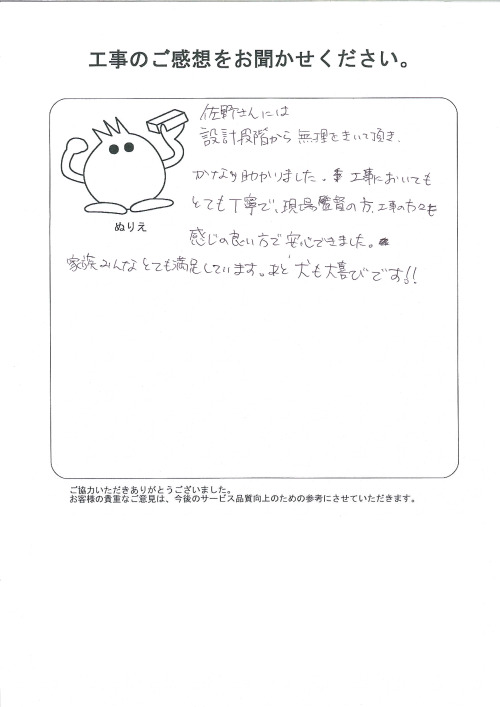 工事のご感想をお聞かせください。
佐野さんには
設計段階から無理をきいて頂き、
かなり助かりました。工事においても
とても丁寧で、現場監督の方、工事の方々も
感じの良い方で安心できました。
家族みんなとても満足しています。あと犬も大喜びです!!
ぬりえ
ご協力いただきありがとうございました。
お客様の貴重なご意見は、今後のサービス品質向上のための参考にさせていただきます。